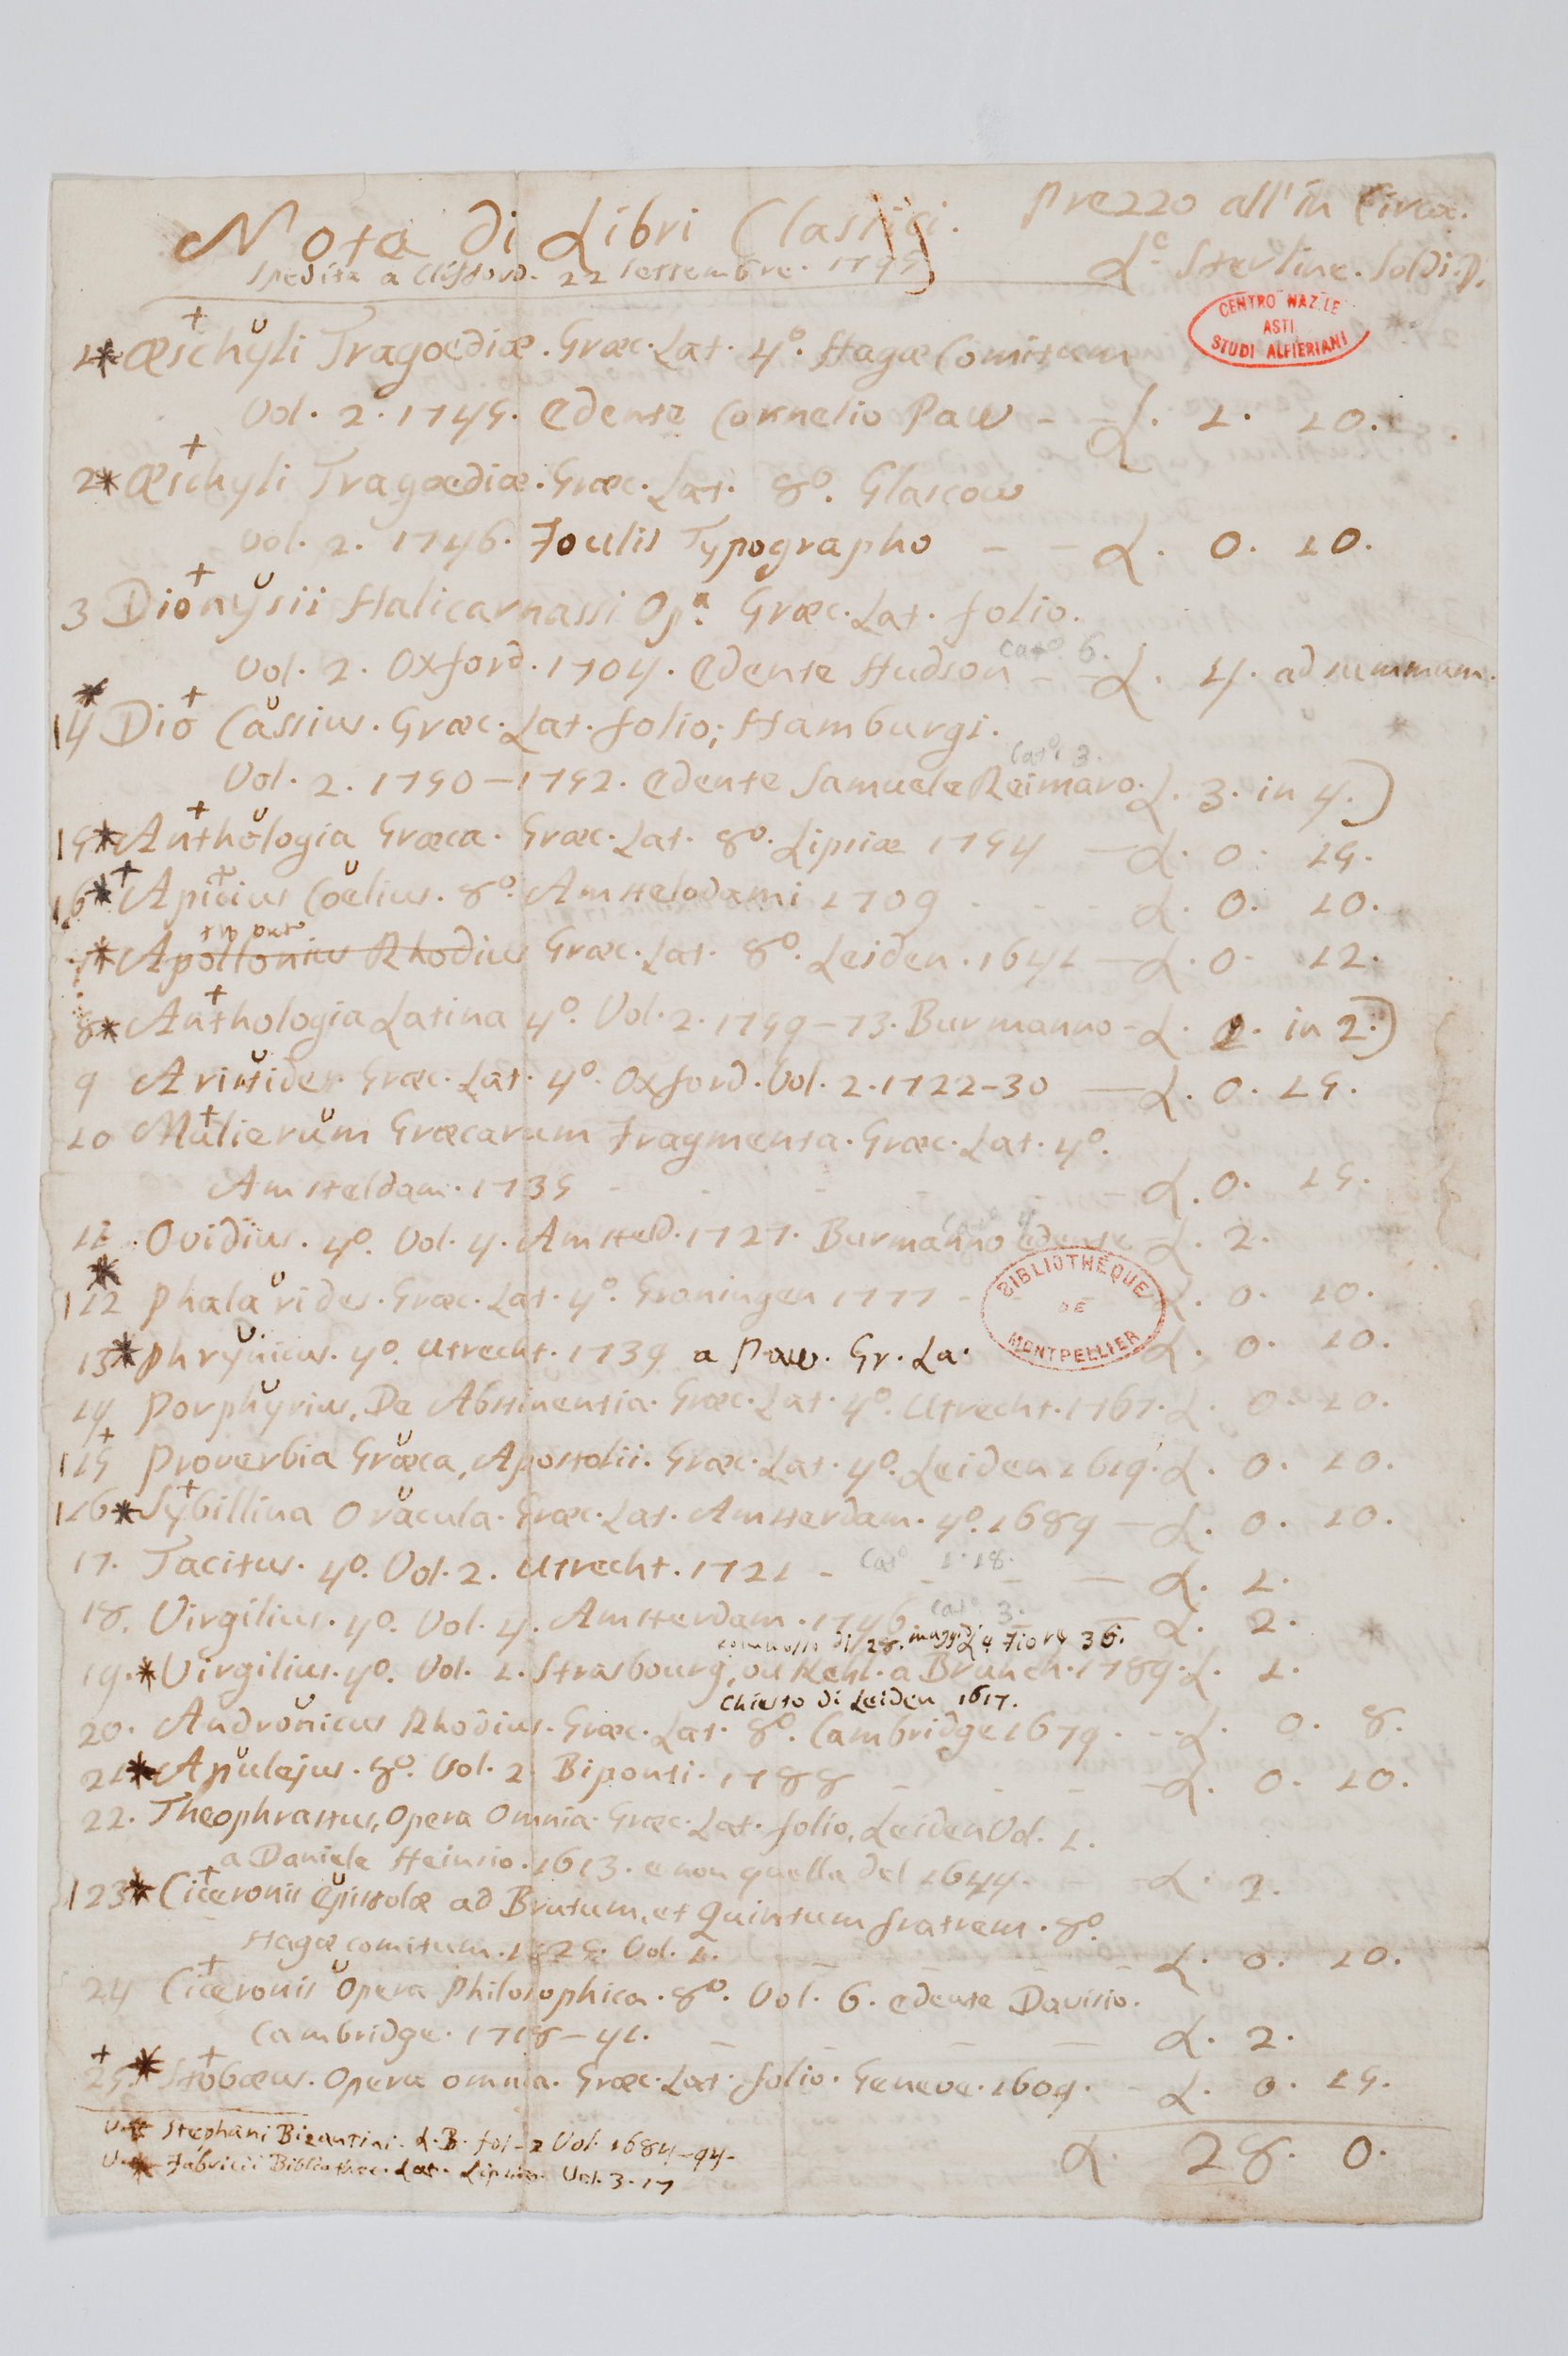 Nota di Libri Classici. Prezzo all'in Circa.
Spedita a Clifford. 22 Settembre. 1795 L.e Sterline. Soldi. D.
CENTRO NAZ.LE
ASTI
STUDI ALFIERIANI
1* Æschyli Tragoediæ. Græc. Lat. 4º. Hagæ Comitum
Vol. 2. 1745. Edente Cornelio Paw - - L. 1. 10.
2* Æschyli Tragoediæ. Græc. Lat. 8º. Glascow
Vol. 2. 1746. Foulis Typographo - - L. 0. 10.
3 Dionysii Halicarnassi Op.a Græc. Lat. folio.
Vol. 2. Oxford. 1704. Edente Hudson - - L. 4. ad summum.
Caro. 6.
4 Dio Cassius. Græc. Lat. folio; Hamburgi.
Vol. 2. 1750-1752. Edente Samuele Reimaro. L. 3. in 4.)
Caro. 3.
5* Anthologia Græca. Græc. Lat. 8º. Lipsiæ 1754 — L. 0. 15.
6* Apicius Coelius. 8º. Amstelodami 1709 - - - L. 0. 10.
7* Apollonius Rhodius Græc. Lat. 8º. Leiden. 1641 — L. 0. 12.
8* Anthologia Latina 4º. Vol. 2. 1759-73. Burmanno - L. 1. in 2.)
9 Aristides. Græc. Lat. 4º. Oxford. Vol. 2. 1722-30 — L. 0. 15.
10 Mulierum Græcarum Fragmenta. Græc. Lat. 4º.
Amsteldam. 1735 - - - L. 0. 15.
11 Ovidius. 4º. Vol. 4. Amsteld. 1727. Burmanno edente - L. 2.
12 Phalarides. Græc. Lat. 4º. Groningen 1777 - L. 0. 10.
BIBLIOTHÈQUE
DE
MONTPELLIER
13* Phrynicus. 4º. Utrecht. 1739 a Paw. Gr. La. L. 0. 10.
14 Porphyrius, De Abstinentia. Græc. Lat. 4º. Utrecht. 1767. L. 0. 10.
15 Proverbia Græca, Apostolii. Græc. Lat. 4º. Leiden 1619. L. 0. 10.
16* Sybillina Oracula. Græc. Lat. Amsterdam. 4º. 1689 — L. 0. 10.
17. Tacitus. 4º. Vol. 2. Utrecht. 1721 - Caro 1. 18. — L. 1.
18. Virgilius. 4º. Vol. 4. Amsterdam. 1746 Caro 3. L. 2.
19.* Virgilius. 4º. Vol. 1. Strasbourg, ou Kehl. a Brunch. 1789. L. 1.
Chiesto di Leiden 1617.
20. Andronicus Rhodius. Græc. Lat. 8º. Cambridge 1679. - - L. 0. 8.
21* Apulejus. 8º. Vol. 2 Biponti. 1788 - - - L. 0. 10.
22. Theophrastus, Opera Omnia. Græc. Lat. folio, Leiden Vol. 1.
a Daniele Heinsio. 1613. e non quella del 1644. - - L.
23* Ciceronis Epistolæ ad Brutum, et Quintum fratrem. 8º
Hagæ comitum. Vol. 1. - - - L. 0. 10.
24 Ciceronis Opera Philosophica. 8º. Vol. 6. edente Davisio.
Cambridge. 1718-41. — — L. 2.
25.* Stobæus. Opera omnia. Græc. Lat. folio. Geneve. 1609. - L. 0. 15.
L. 28. 0.
Stephani Bizantini. L. B. fol. 2 Vol. 1684-94.
Fabricii Bibliothec. Lat. Lipsiæ. Vol. 3. 17